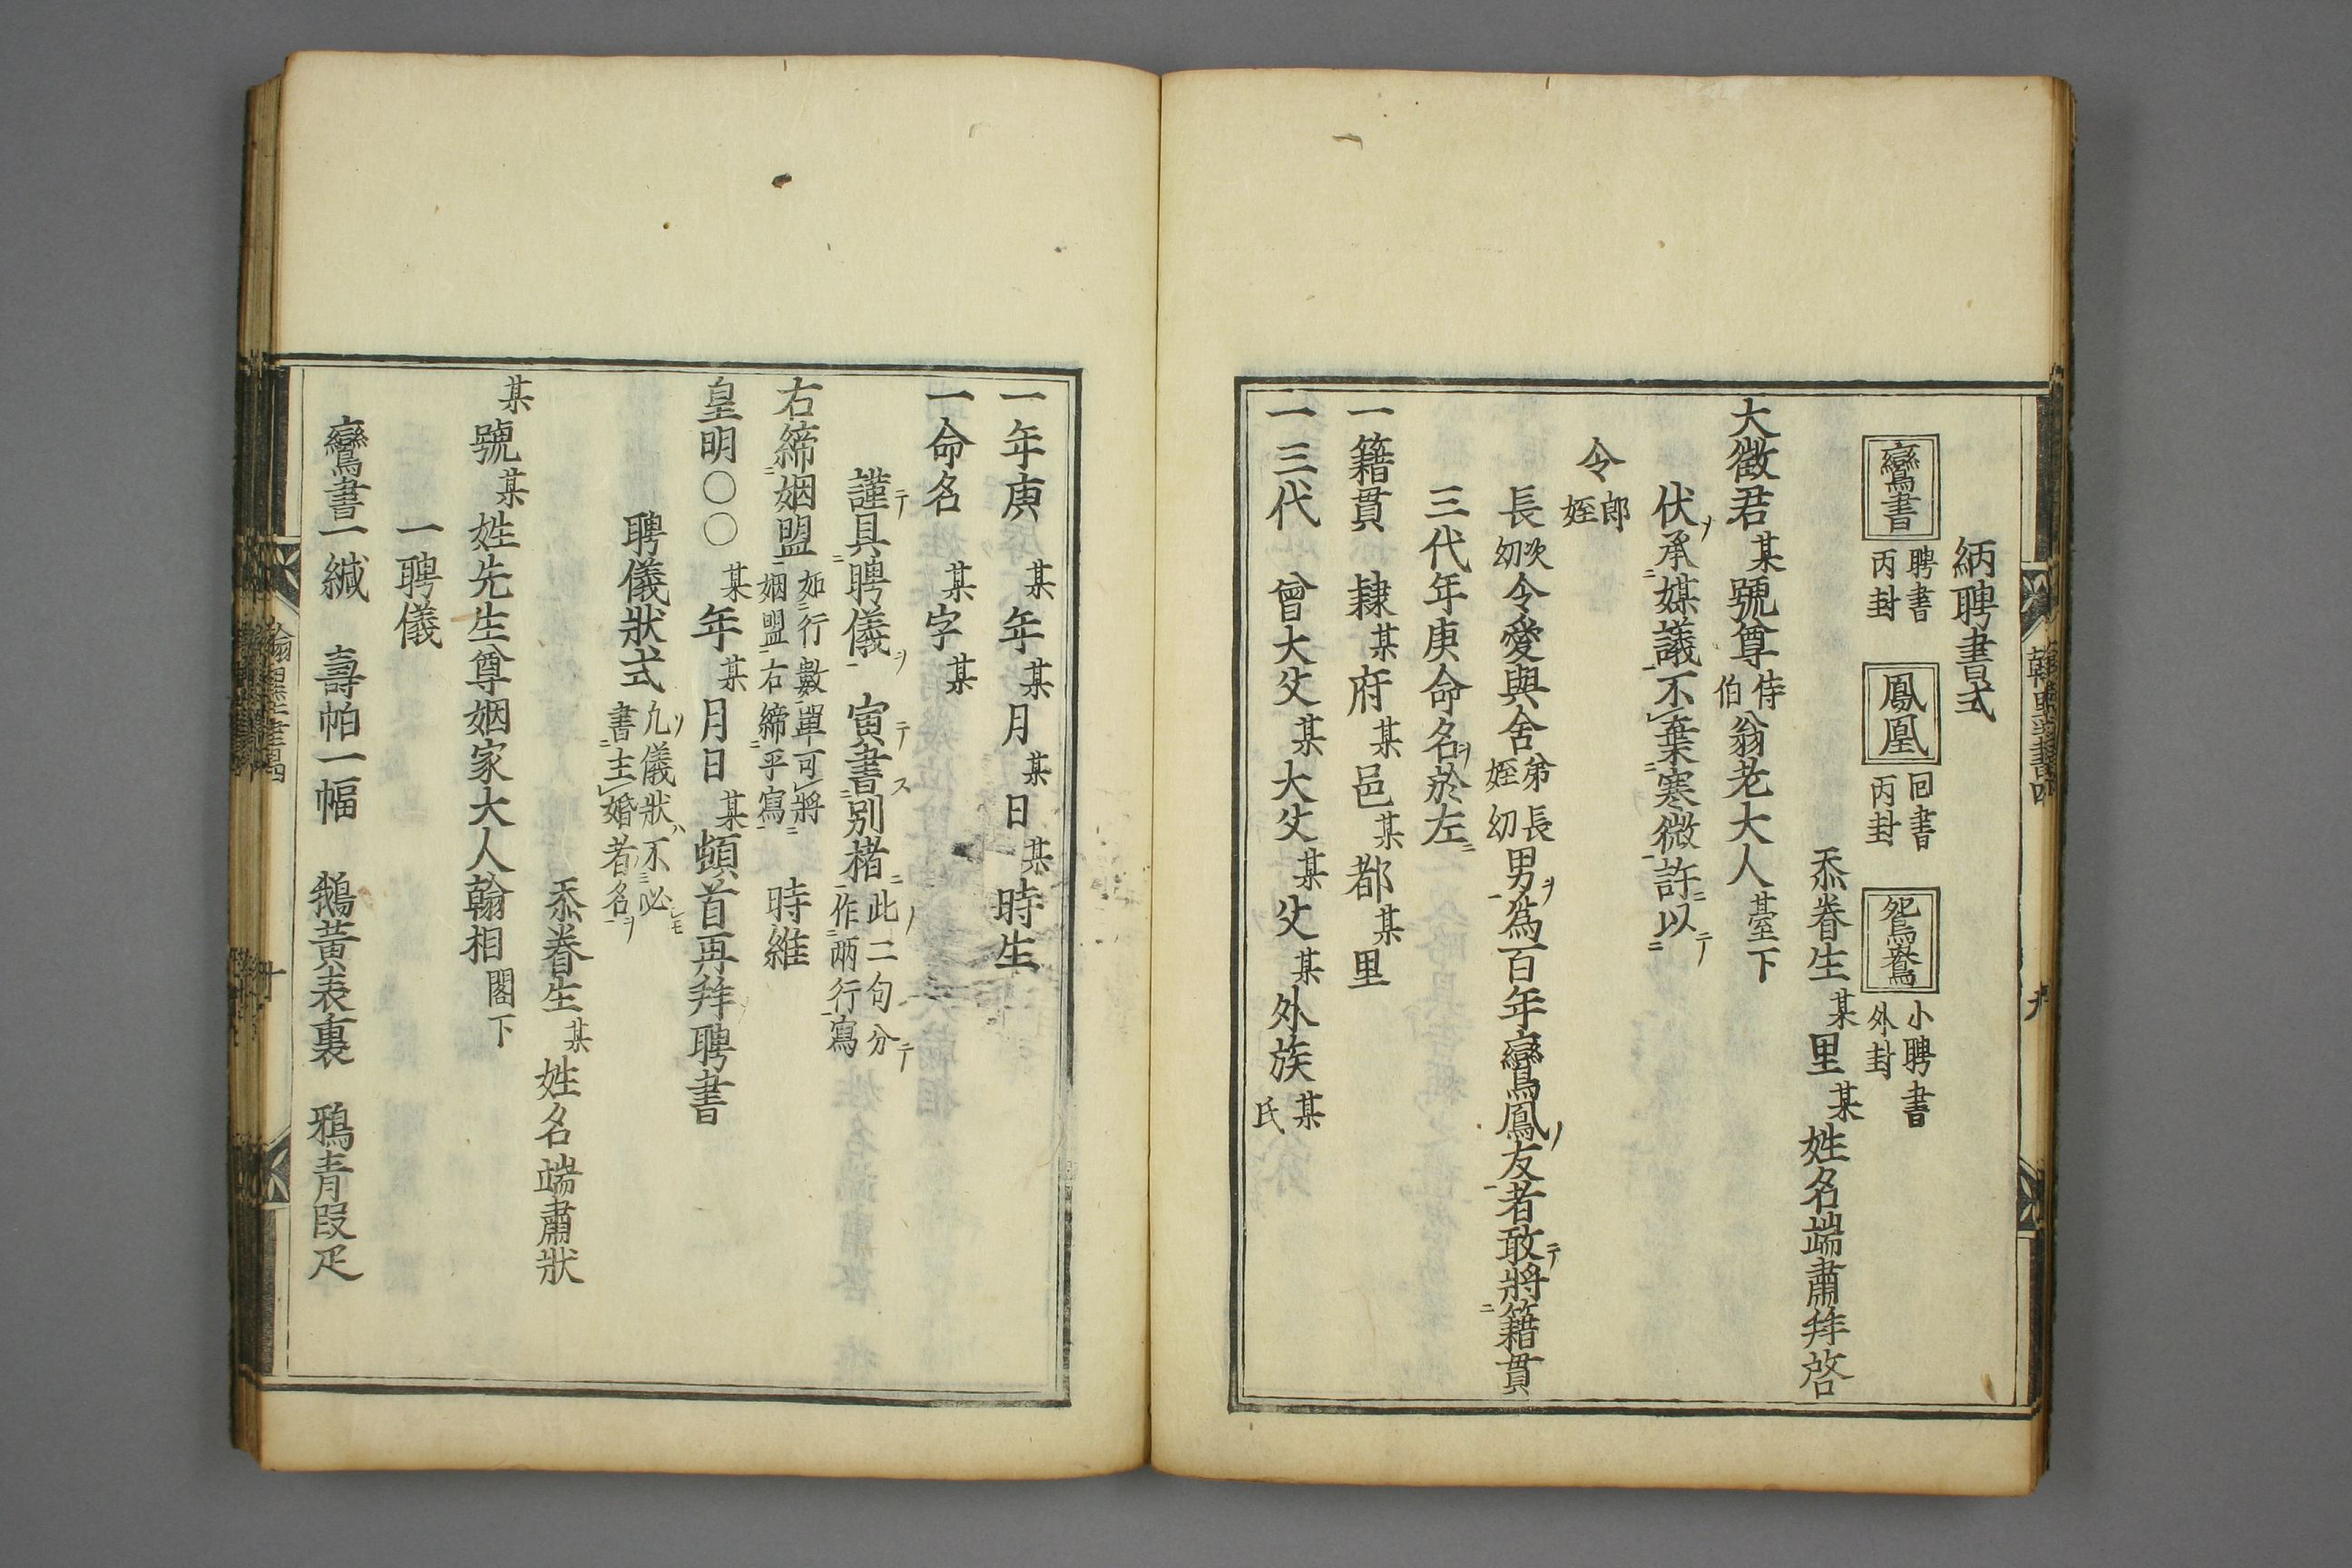 納聘書式
鸞書 聘書丙封 鳳凰 回書丙封 鴛鴦 小聘書外封
忝眷生某里某姓名端肅拜啓
大徵君某號尊侍伯翁老大人臺下
伏承媒議不棄寒微許以テ
令郎姪
長次幼令愛與舍弟姪長幼男ヲ爲百年鸞鳳ノ友者敢テ將籍貫
三代年庚命名ヲ於左ニ
一籍貫 隸某府某邑某都某里
一三代 曾大父某大父某父某外族某氏
一年庚 某年某月某日某時生
一命名 某字某
謹テ具聘儀ヲ 寅テ書ス別楮ニ此ノ二句分テ作兩行寫
右締姻盟如行數單可將姻盟右締乎寫 時維
皇明〇〇 某年某月日某頓首再拜聘書
聘儀狀式凡ソ儀狀ハ不必モ書主婚者ノ名ヲ
忝眷生某姓名端肅狀
某號某姓先生尊姻家大人翰相閣下
一聘儀
鸞書一緘 壽帕一幅 鵝黃表裏 鴉青段疋
九
十